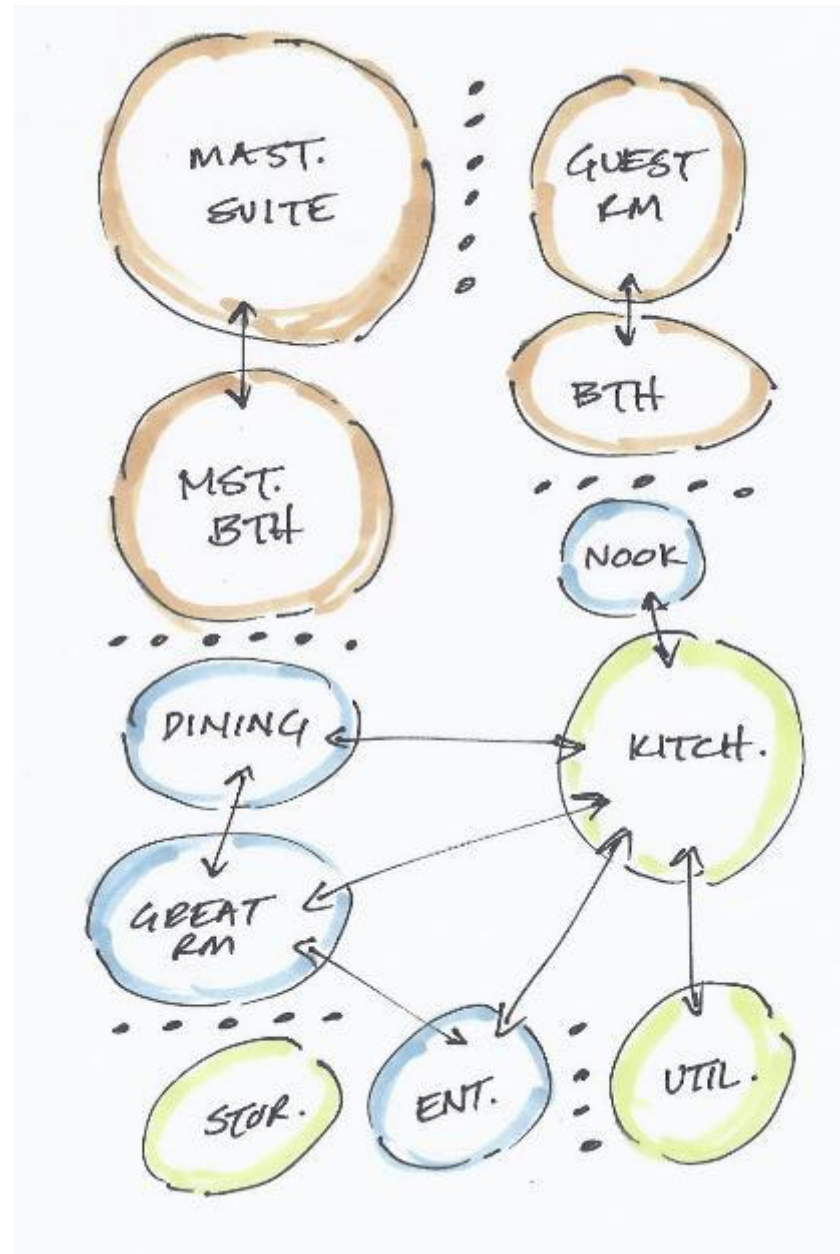 MAST.
SUITE
GUEST
RM
BTH
MST.
BTH
NOOK
DINING
KITCH.
GREAT
RM
STOR.
ENT.
UTIL.